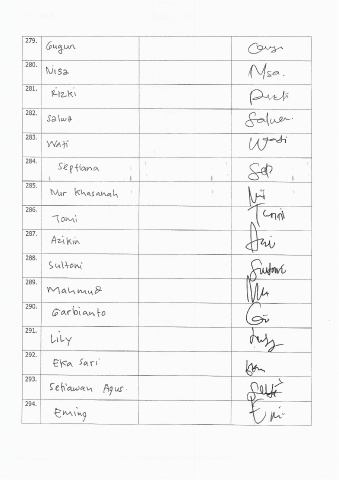 279. Gugun
280. Nisa Nisa.
281. Rizki
282. Salwa
283. Wati Wati
284. Septiana Sep
285. Nur Khasanah
286. Tomi Tomi
287. Azikin
288. Sultoni
289. Mahmud
290. Garbianto
291. Lily
292. Eka Sari
293. Setiawan Agus.
294. Eming